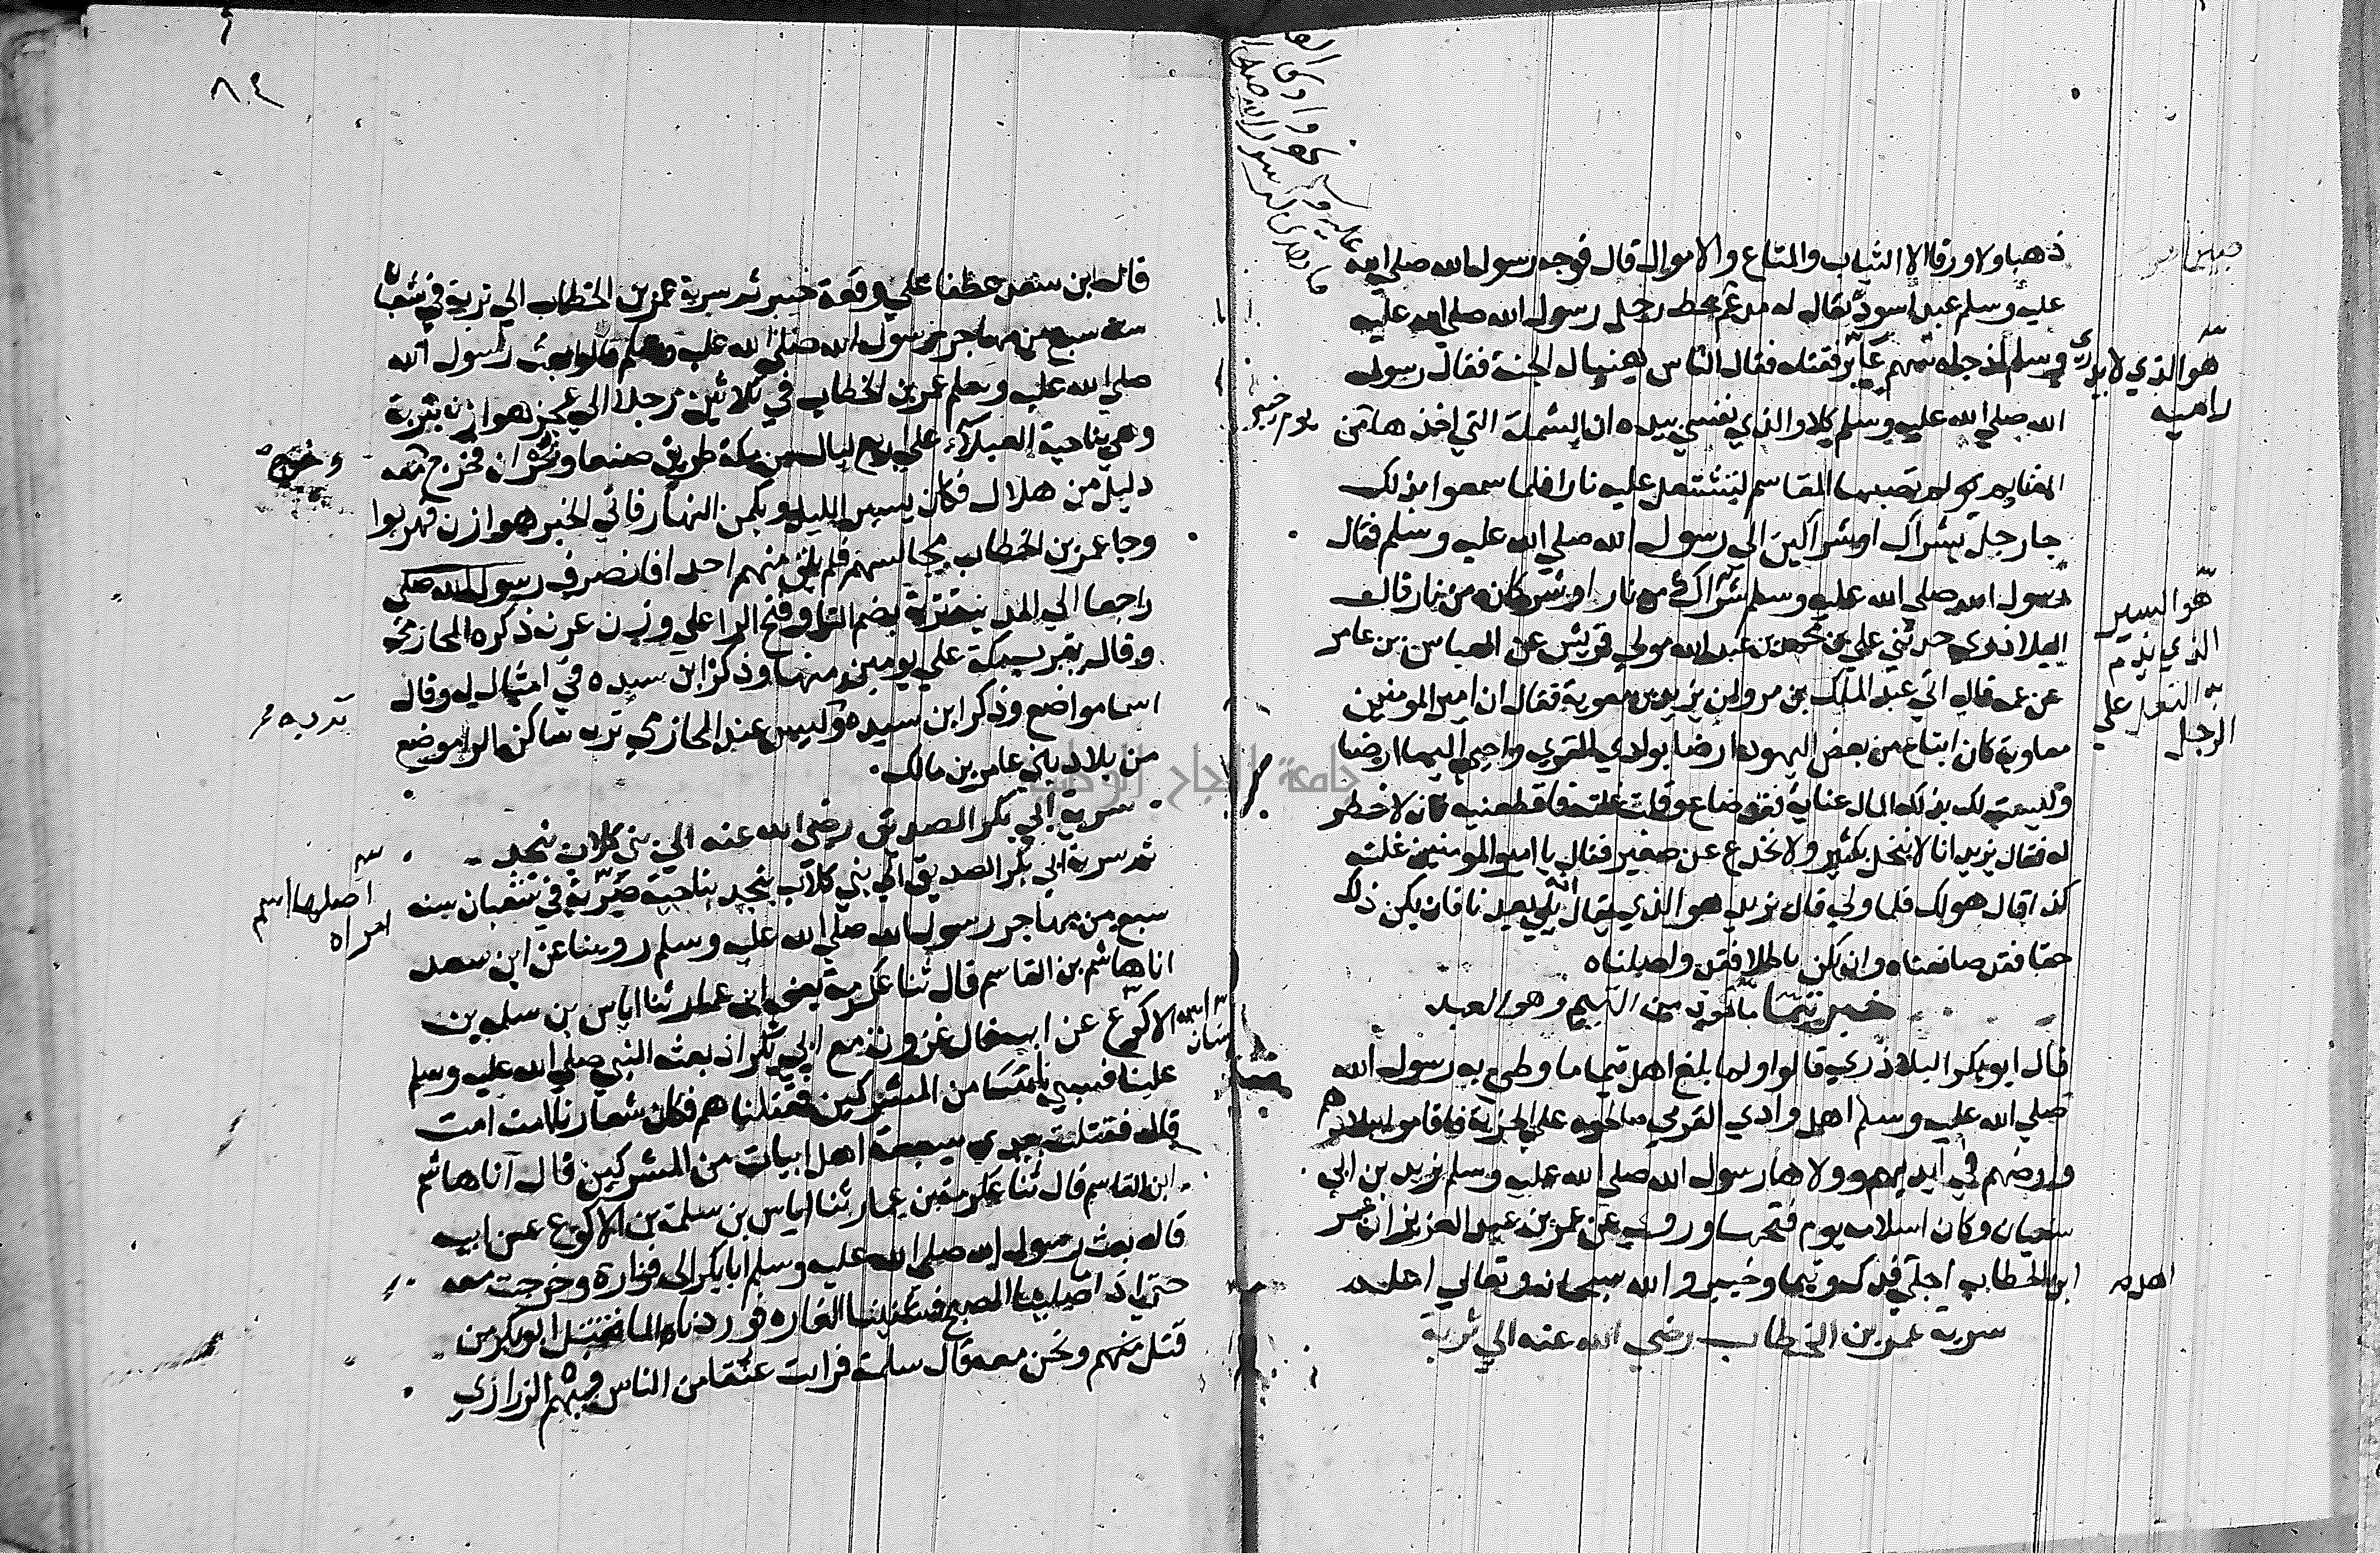 ذهبا ولا ورقا الا الثياب والمتاع والاموال قال فوجه رسول الله صلي الله
عليه وسلم عبد اسود يقال له مدعم يحط رحل رسول الله صلي الله عليه
وسلم اذ جاه سهم عاير فقتله فقال الناس هنيا له الجنة فقال رسول
الله صلي الله عليه وسلم كلا والذي نفسي بيده ان الشملة التي اخذها من
المغانم لم تصبها المقاسم لتشتعل عليه نارا فلما سمعوا بذلك
جا رجل بشراك او شراكين الي رسول الله صلي الله عليه وسلم فقال
رسول الله صلي الله عليه وسلم شراك من نار او شراكان من نار قال
البلاذري حدثني علي بن محمد بن عبد الله مولي قريش عن العباس بن عامر
عن عمه قال اتي عبد الملك بن مروان يزيد بن معوية فقال ان امير المومنين
معاوية كان ابتاع من بعض اليهود ارضا بوادي القري واحيي اليها ارضا
وليست لك بذلك المال عناية فقد ضاع وقلت غلته فاقطعنيه فانه لا خطر
له فقال يزيد انا لا نبخل بكثير ولا نخدع عن صغير فقال يا امير المومنين غلته
كذا قال هو لك فلما ولي قال يزيد هو الذي يقال انه يلي بعدنا فان يكن ذلك
حقا فقد صانعناه وان يكن باطلا فقد واصلناه
خبر تيما ماخوذ من التيم وهو العبد
قال ابو بكر البلاذري قالوا ولما بلغ اهل تيما ما وطي به رسول الله
صلي الله عليه وسلم اهل وادي القري صالحوه علي الجزية فاقاموا ببلادهم
وارضهم في ايديهم وولاها رسول الله صلي الله عليه وسلم يزيد بن ابي
سفيان وكان اسلامه يوم فتحها وروي عن عمر بن عبد العزيز ان عمر
ابن الخطاب اجلي فدك وتيما وخيبر والله سبحانه وتعالي اعلم
سرية عمر بن الخطاب رضي الله عنه الي تربة
هو الذي لا يدري
راميه
يوم خيبر
هو السير
الذي يدم
به النعل علي
الرجل
اهل
٨٤
قال ابن سعد عطفا علي وقعة خيبر ثم سرية عمر بن الخطاب الي تربة في شعبان
سنة سبع من مهاجر رسول الله صلي الله عليه وسلم قالوا بعث رسول الله
صلي الله عليه وسلم عمر بن الخطاب في ثلاثين رجلا الي عجز هوازن بتربة
وهي بناحية العبلاء علي اربع ليال من مكة طريق صنعا ونجران فخرج معه
دليل من هلال فكان يسير الليل ويكمن النهار فاتي الخبر هوازن فهربوا
وجا عمر بن الخطاب محالهم فلم يلق منهم احدا فانصرف رسول الله صلي
راجعا الي المدينة تربة بضم التا وفتح الرا علي وزن عرنة ذكره الحازمي
وقال بقرب مكة علي يومين منها وذكر ابن سيده في امثال له وقال
اسما مواضع وذكر ابن سيده وليس عند الحازمي تربه ساكن الرا موضع
من بلاد بني عامر بن مالك
سرية ابي بكر الصديق رضي الله عنه الي بني كلاب بنجد
ثم سرية ابي بكر الصديق الي بني كلاب بنجد بناحية ضرية في شعبان سنه
سبع من مهاجر رسول الله صلي الله عليه وسلم روينا عن ابن سعد
انا هاشم بن القاسم قال ثنا عكرمة يعني ابن عمار ثنا اياس بن سلمه بن
الاكوع عن ابيه قال غزوت مع ابي بكر اذ بعثه النبي صلي الله عليه وسلم
علينا فسبي ناسا من المشركين فقتلناهم فكان شعارنا امت امت
قال فقتلت بيدي سبعة اهل ابيات من المشركين قال انا هاشم
ابن القاسم قال ثنا عكرمة بن عمار ثنا اياس بن سلمة بن الاكوع عن ابيه
قال بعث رسول الله صلي الله عليه وسلم ابا بكر الي فزارة وخرجت معه
حتي اذا صلينا الصبح شنينا الغاره فوردنا الما فقتل ابو بكر من
قتل منهم ونحن معه قال سلمة فرايت عنقا من الناس فيهم الذراري
وخرج
تربه
اصلها اسم
امراه
اسمه
سنان
جامعة النجاح الوطنية